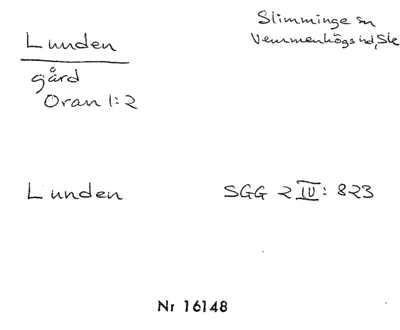 Lunden
Slimminge sn
Vemmenhögs hd, Sk
gård
Oran 1:2
Lunden
SGG 2 IV: 823
Nr 16148